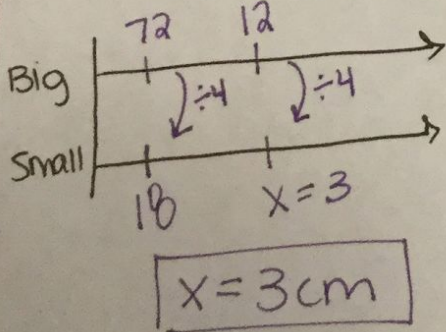 72 12
Big
÷4 ÷4
Small
18 x = 3
x = 3cm